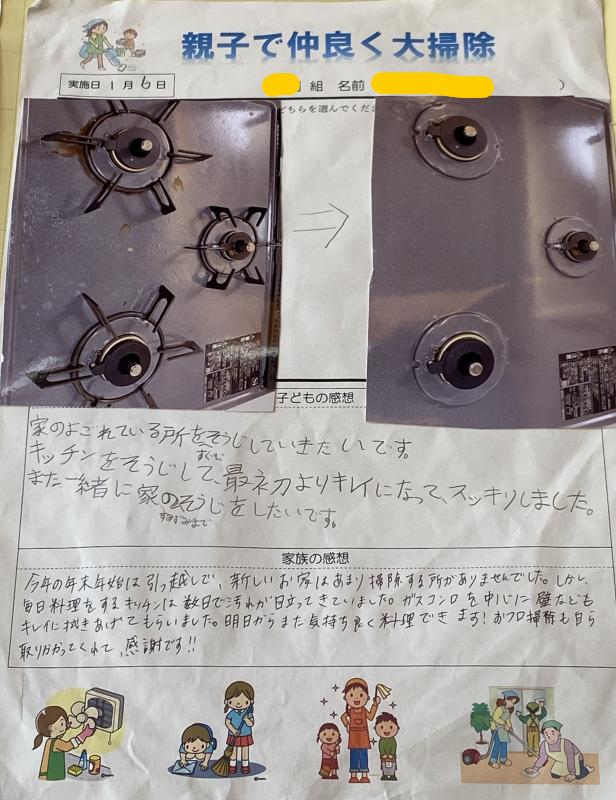 親子で仲良く大掃除
実施日 1月6日
組 名前 )
どちらを選んでくださ
子どもの感想
家のよごれている所をすぐにそうじしていきたいです。
キッチンをそうじして、最初よりキレイになって、スッキリしました。
また一緒に家のすみずみまでそうじをしたいです。
家族の感想
今年の年末年始は引っ越しで、新しいお家はあまり掃除する所がありませんでした。しかし、
毎日料理をするキッチンは数日で汚れが目立ってきていました。ガスコンロを中心に壁なども
キレイに拭きあげてもらいました。明日からまた気持ち良く料理できます!おフロ掃除も自ら
取りかかってくれて、感謝です!!